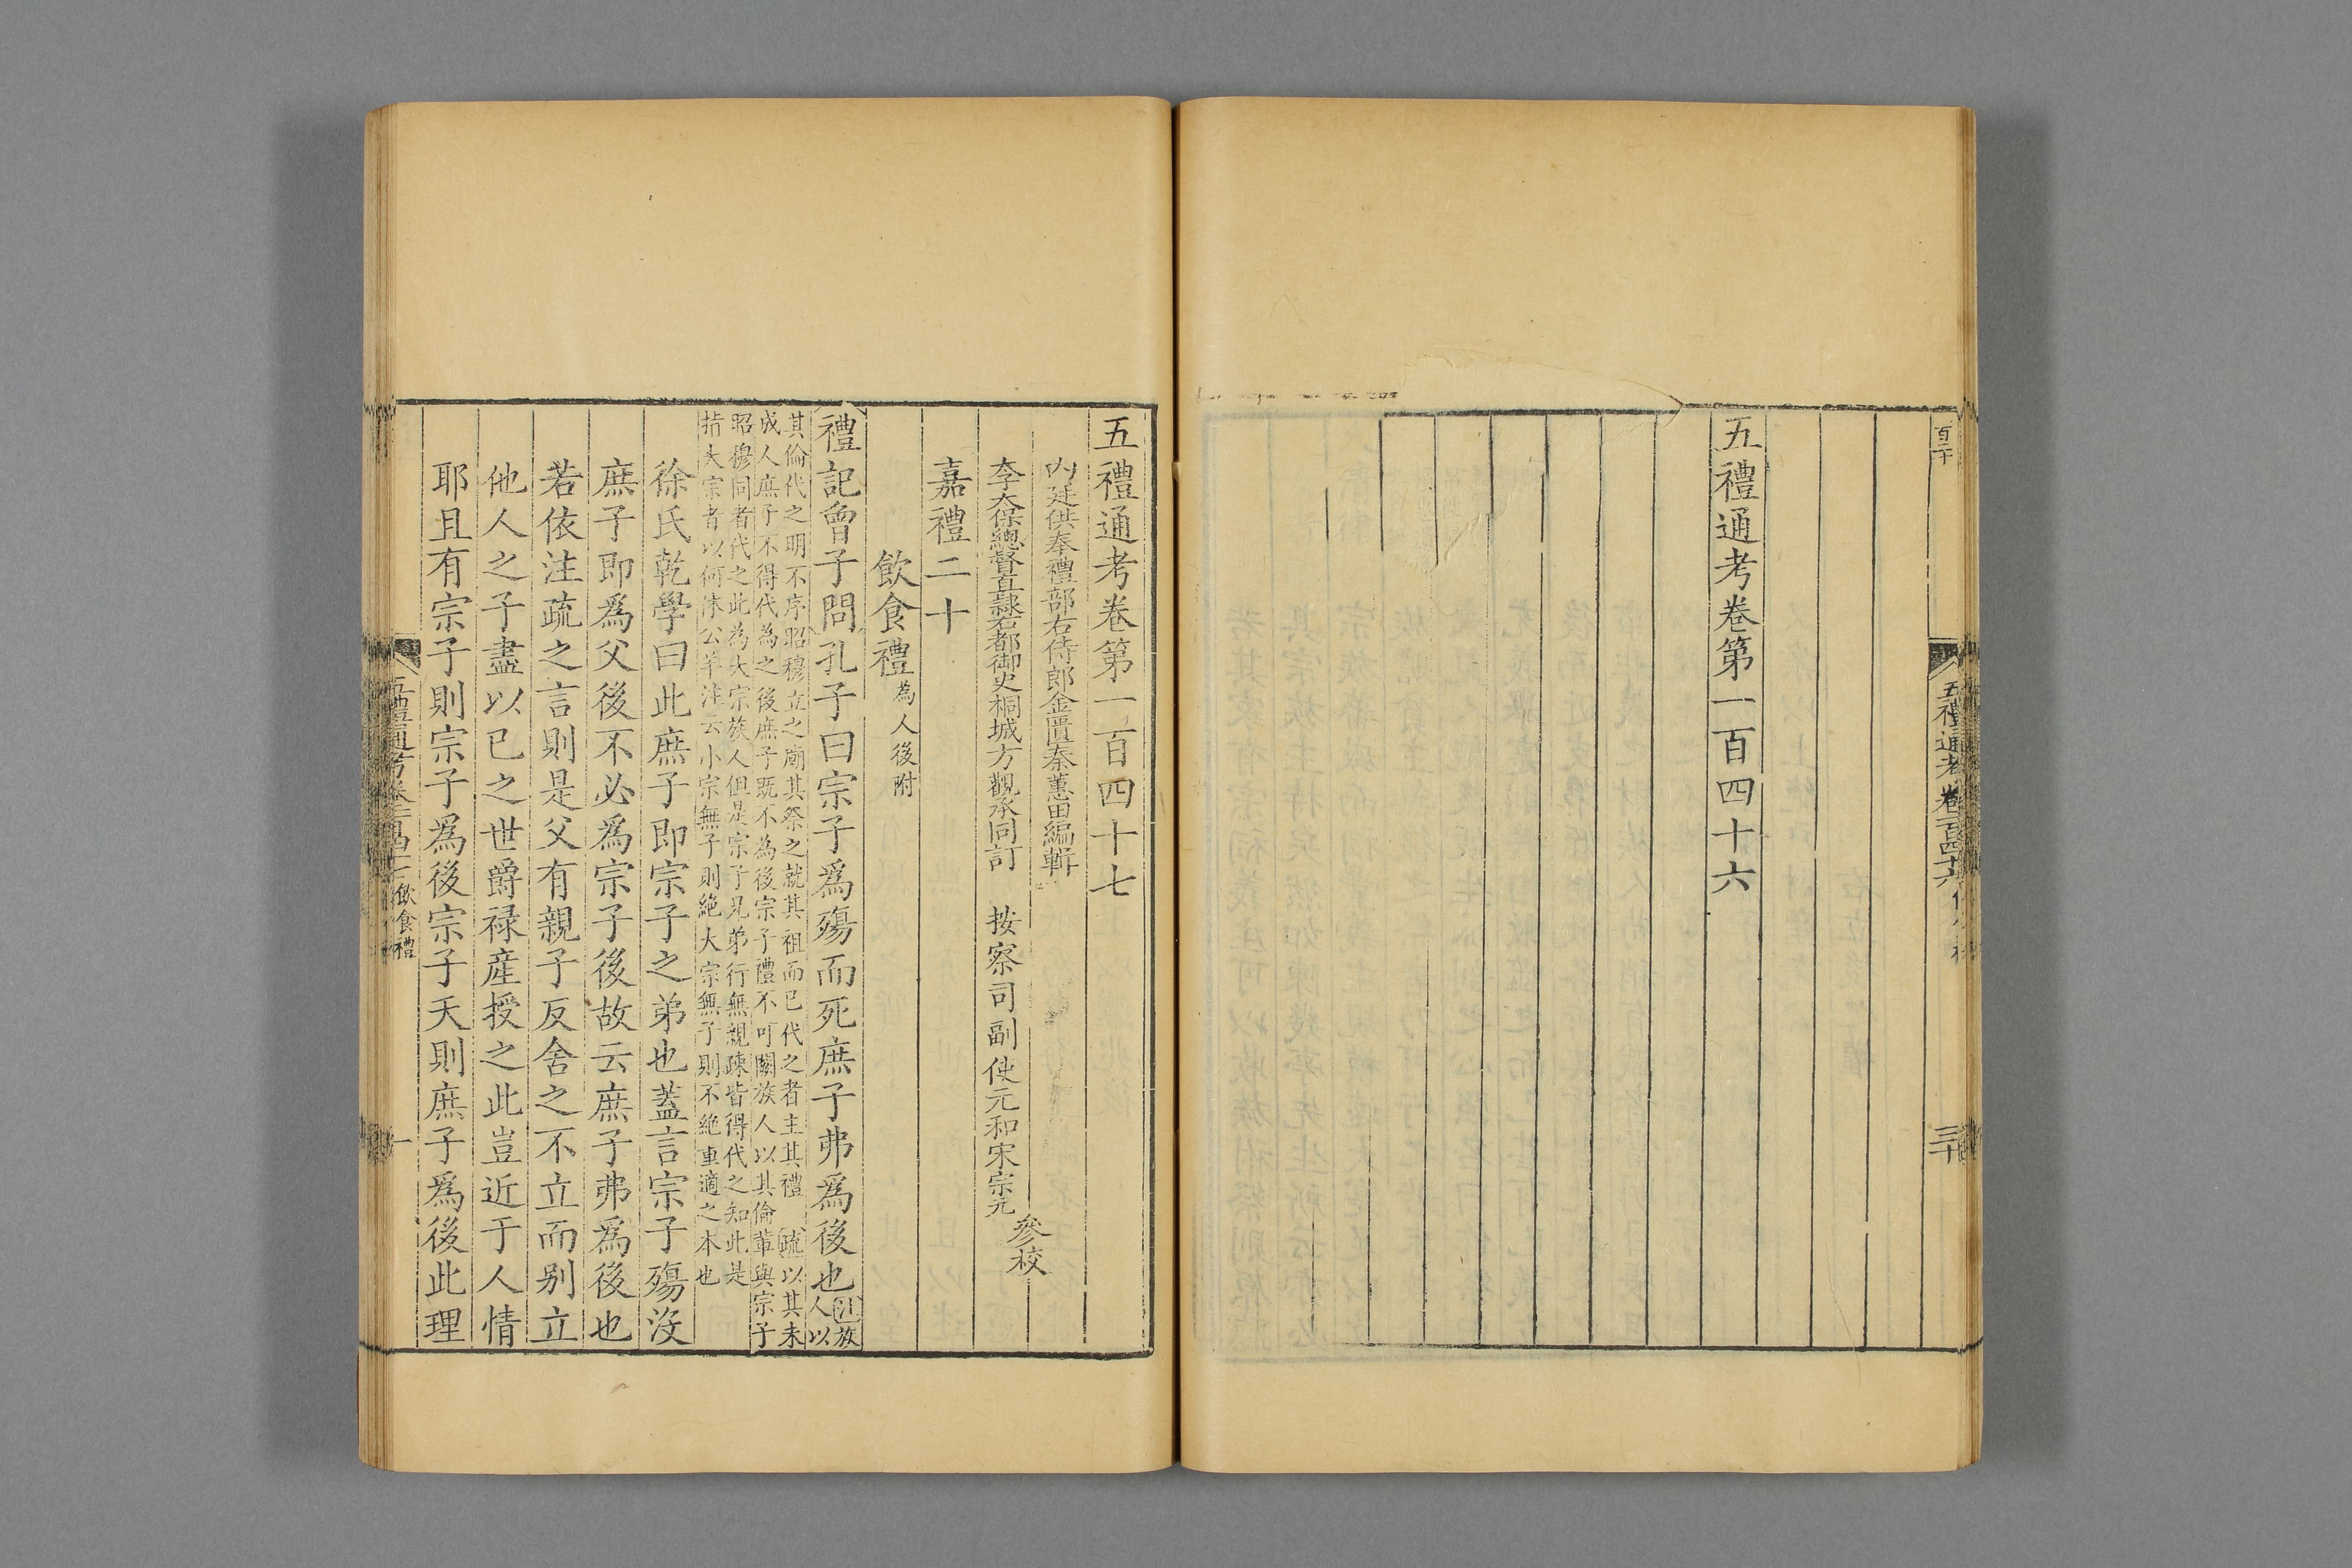 五禮通考卷第一百四十六
五禮通考卷第一百四十七
內廷供奉禮部右侍郎金匱秦蕙田編輯
太保總督直隸右都御史桐城方觀承同訂
按察司副使元和宋宗元
參校
嘉禮二十
飲食禮為人後附
禮記曾子問孔子曰宗子爲殤而死庶子弗爲後也注族人以
其倫代之明不序昭穆立之廟其祭之就其祖而已代之者主其禮 疏以其未
成人庶子不得代為之後庶子既不為後宗子禮不可闕族人以其倫輩與宗子
昭穆同者代之此為大宗族人但是宗子兄弟行無親疎皆得代之知此是
指大宗者以何休公羊注云小宗無子則絶大宗無子則不絶重適之本也
徐氏乾學曰此庶子即宗子之弟也蓋言宗子殤沒
庶子即爲父後不必爲宗子後故云庶子弗爲後也
若依注疏之言則是父有親子反舍之不立而別立
他人之子盡以已之世爵禄産授之此豈近于人情
耶且有宗子則宗子爲後宗子夭則庶子爲後此理
飲食禮
一